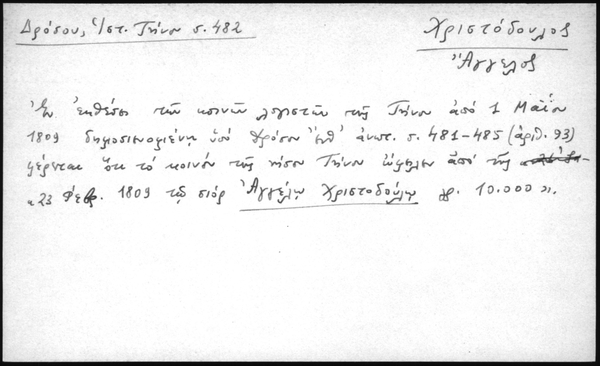 Δρόσου, Ἱστ. Τήνου σ. 482
Χριστόδουλος
Ἄγγελος
Ἐν ἐκθέσει τῶν κοινῶν λογιστῶν τῆς Τήνου ἀπὸ 1 Μαΐου
1809 δημοσιευομένῃ ὑπὸ Δρόσου ἔνθ' ἀνωτ. σ. 481-485 (ἀριθ. 93)
φέρεται ὅτι τὸ κοινὸν τῆς νήσου Τήνου ὤφειλεν ἀπὸ τῆς
«23 Φεβρ. 1809 τῷ σιὸρ Ἀγγέλῳ Χριστοδούλῳ γρ. 10.000».